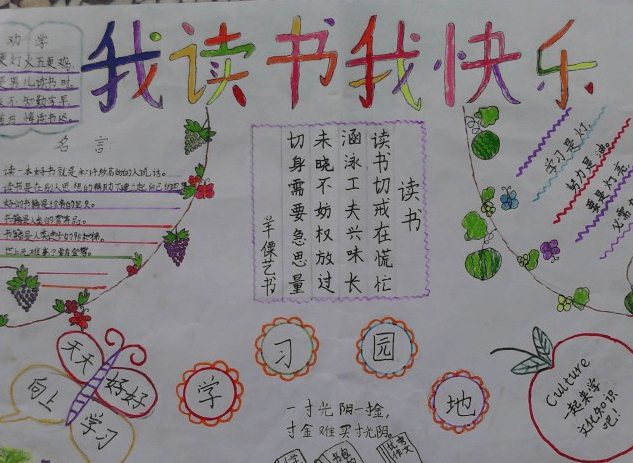 我读书我快乐
劝学
更灯火五更鸡
是男儿读书时
发不知勤学早
首方悔读书迟
名言
读一本好书就是和许多高尚的人说话。
读书是在别人思想的帮助下建立起自己的思
好的书籍是
书籍是人类的营养品。
书籍是人类进步的阶梯。
世上无难事只要肯登攀。
读书
读书切戒在慌忙
涵泳工夫兴味长
未晓不妨权放过
切身需要急思量
羊傈艺书
学习是灯
努力是油
要是灯亮
必需
天天
好好
向上
学习
学
习
园
地
一寸光阴一寸金,
寸金难买寸光阴。
优秀
作文
Culture
一起来学
文化知识
吧!